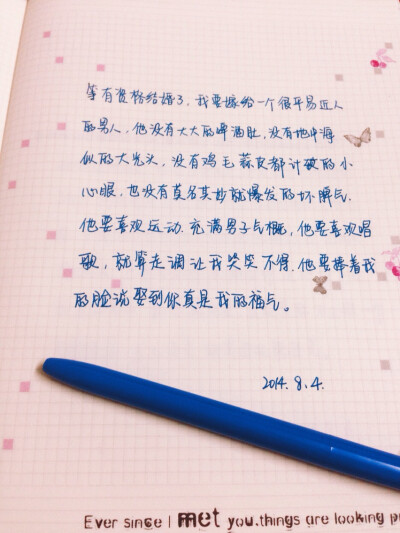 等有资格结婚了，我要嫁给一个很平易近人
的男人，他没有大大的啤酒肚，没有地中海
似的大光头，没有鸡毛蒜皮都计较的小
心眼，也没有莫名其妙就爆发的坏脾气．
他要喜欢运动．充满男子气概，他要喜欢唱
歌，就算走调让我哭笑不得．他要捧着我
的脸说娶到你真是我的福气。
2014.8.4.
Ever since I met you.things are looking